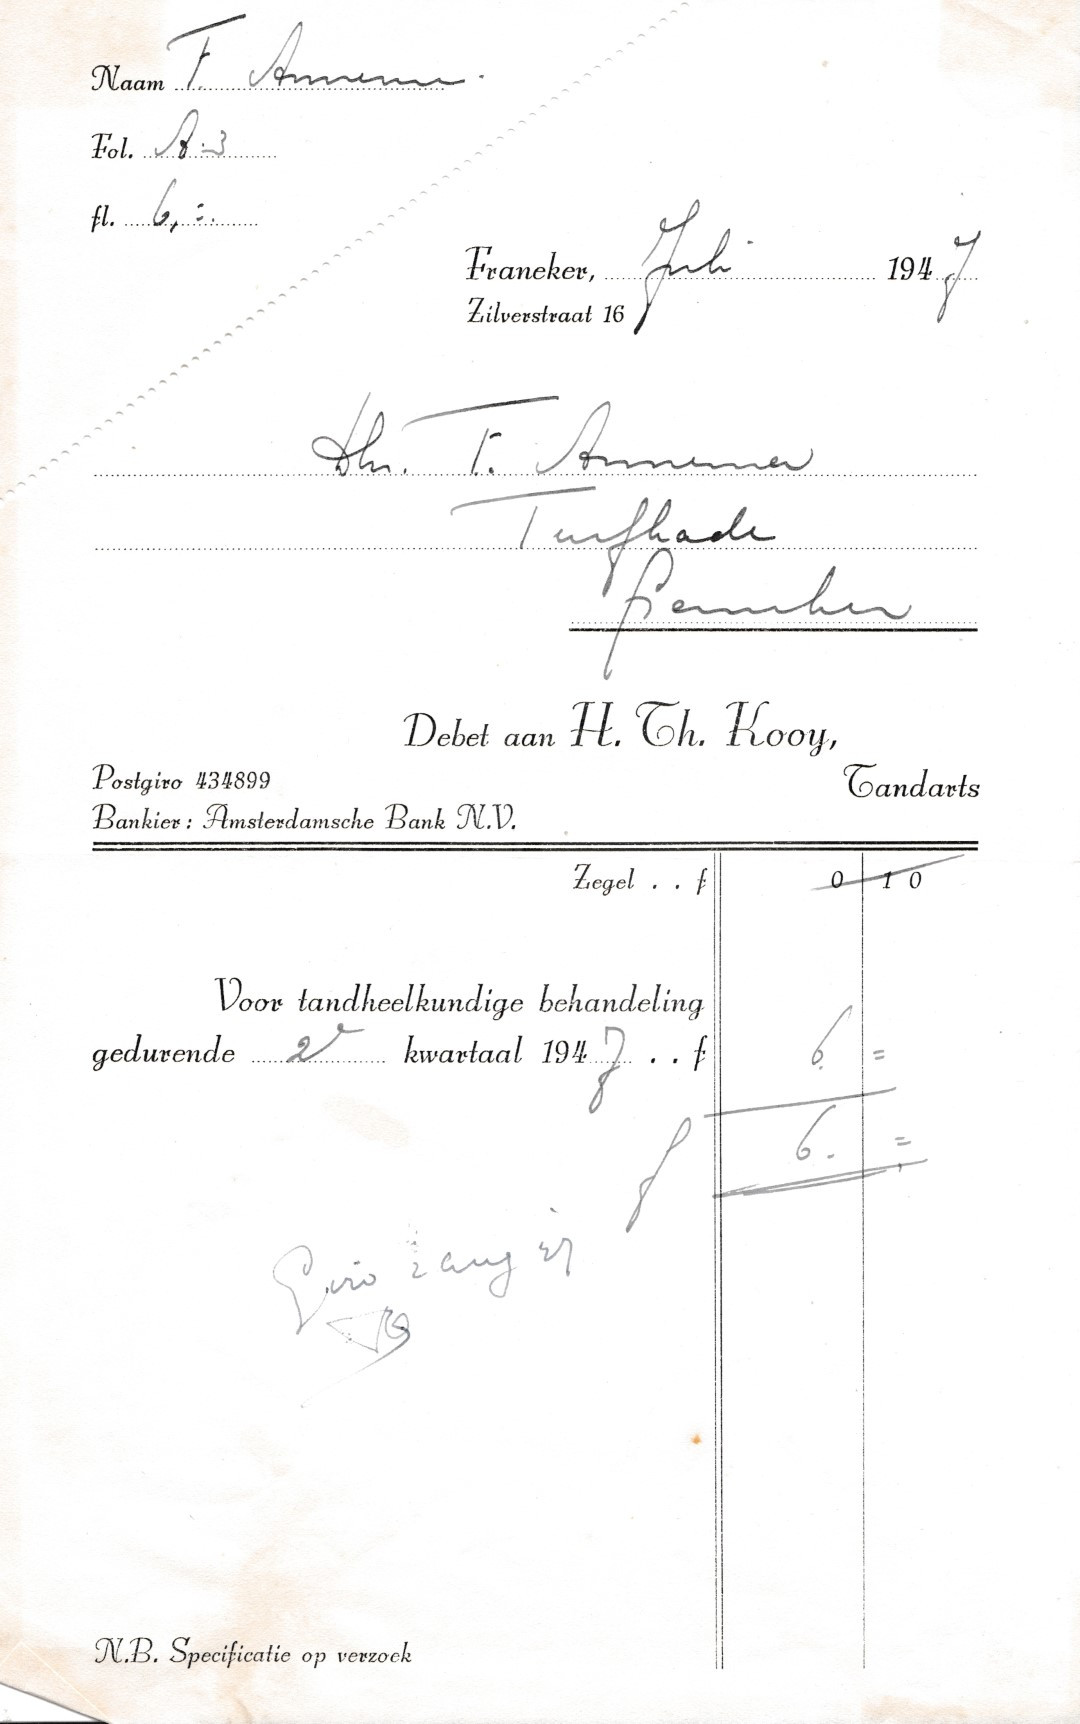 Naam F. Annema.
Fol. A-3
fl. 6,=.
Franeker, Juli 1947
Zilverstraat 16
Dhr. F. Annema
Turfkade
Franeker
Debet aan H. Th. Kooy,
Tandarts
Postgiro 434899
Bankier: Amsterdamsche Bank N.V.
Zegel . . f 0 10
Voor tandheelkundige behandeling
gedurende 2e kwartaal 1947 . . f 6. =
f 6. =
Giro 2 aug 47
N.B. Specificatie op verzoek